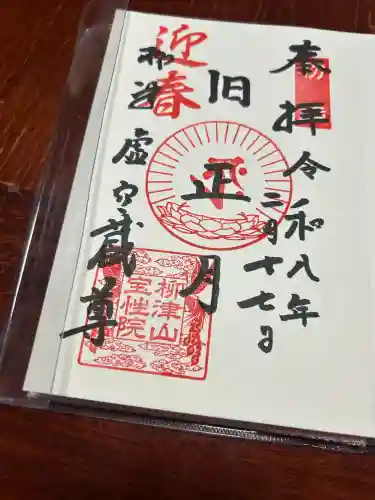 奉拝
令和八年
二月十七日
旧正月
迎春
福満虚空蔵尊
柳津山
宝性院